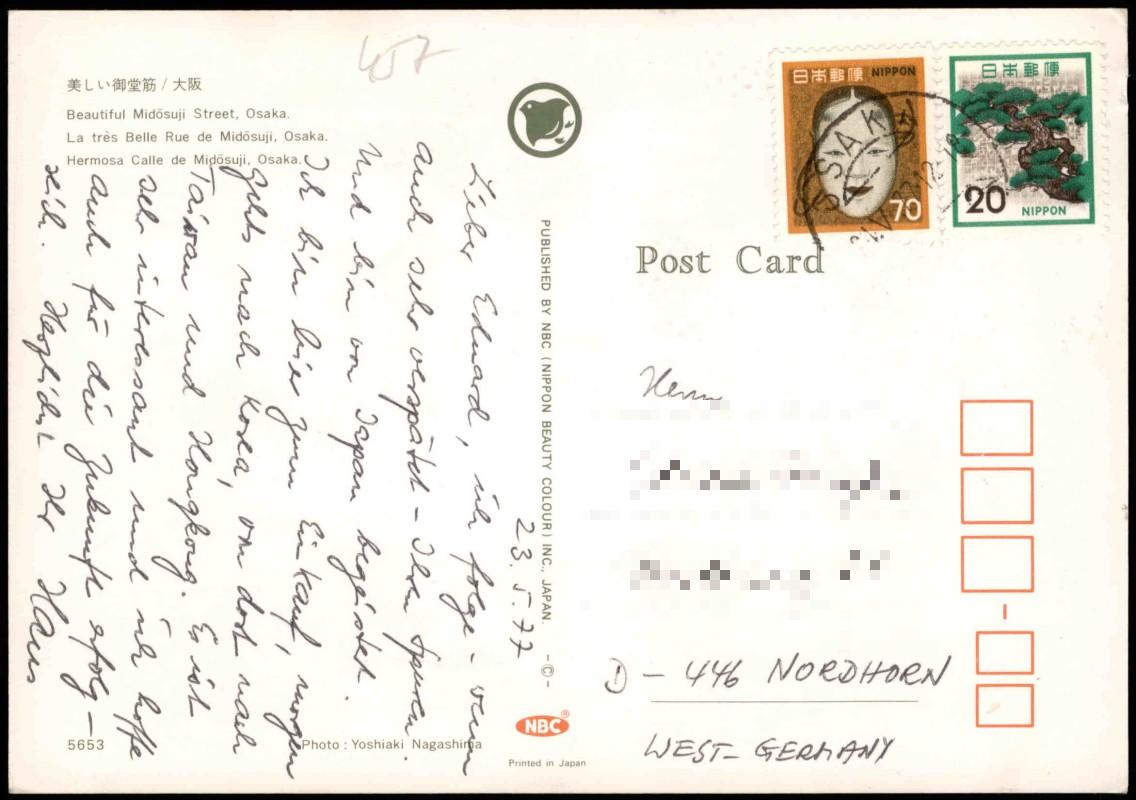 457
美しい御堂筋 / 大阪
Beautiful Midōsuji Street, Osaka.
La très Belle Rue de Midōsuji, Osaka.
Hermosa Calle de Midōsuji, Osaka.
23.5.77
Lieber Eduard, ich folge - wenn
auch sehr verspätet - Ihren Spuren
und bin von Japan begeistert.
Ich bin hier zum Einkauf, morgen
gehts nach Korea, von dort nach
Taiwan und Hongkong. Es ist
sehr interessant und ich hoffe
auch für die Zukunft erfolg-
reich. Herzlichst Ihr Hans
5653
Photo : Yoshiaki Nagashima
PUBLISHED BY NBC (NIPPON BEAUTY COLOUR) INC., JAPAN. -©-
NBC®
Printed in Japan
日本郵便 NIPPON
70
日本郵便
20
NIPPON
OSAKA
Post Card
Herrn
D - 446 NORDHORN
WEST-GERMANY